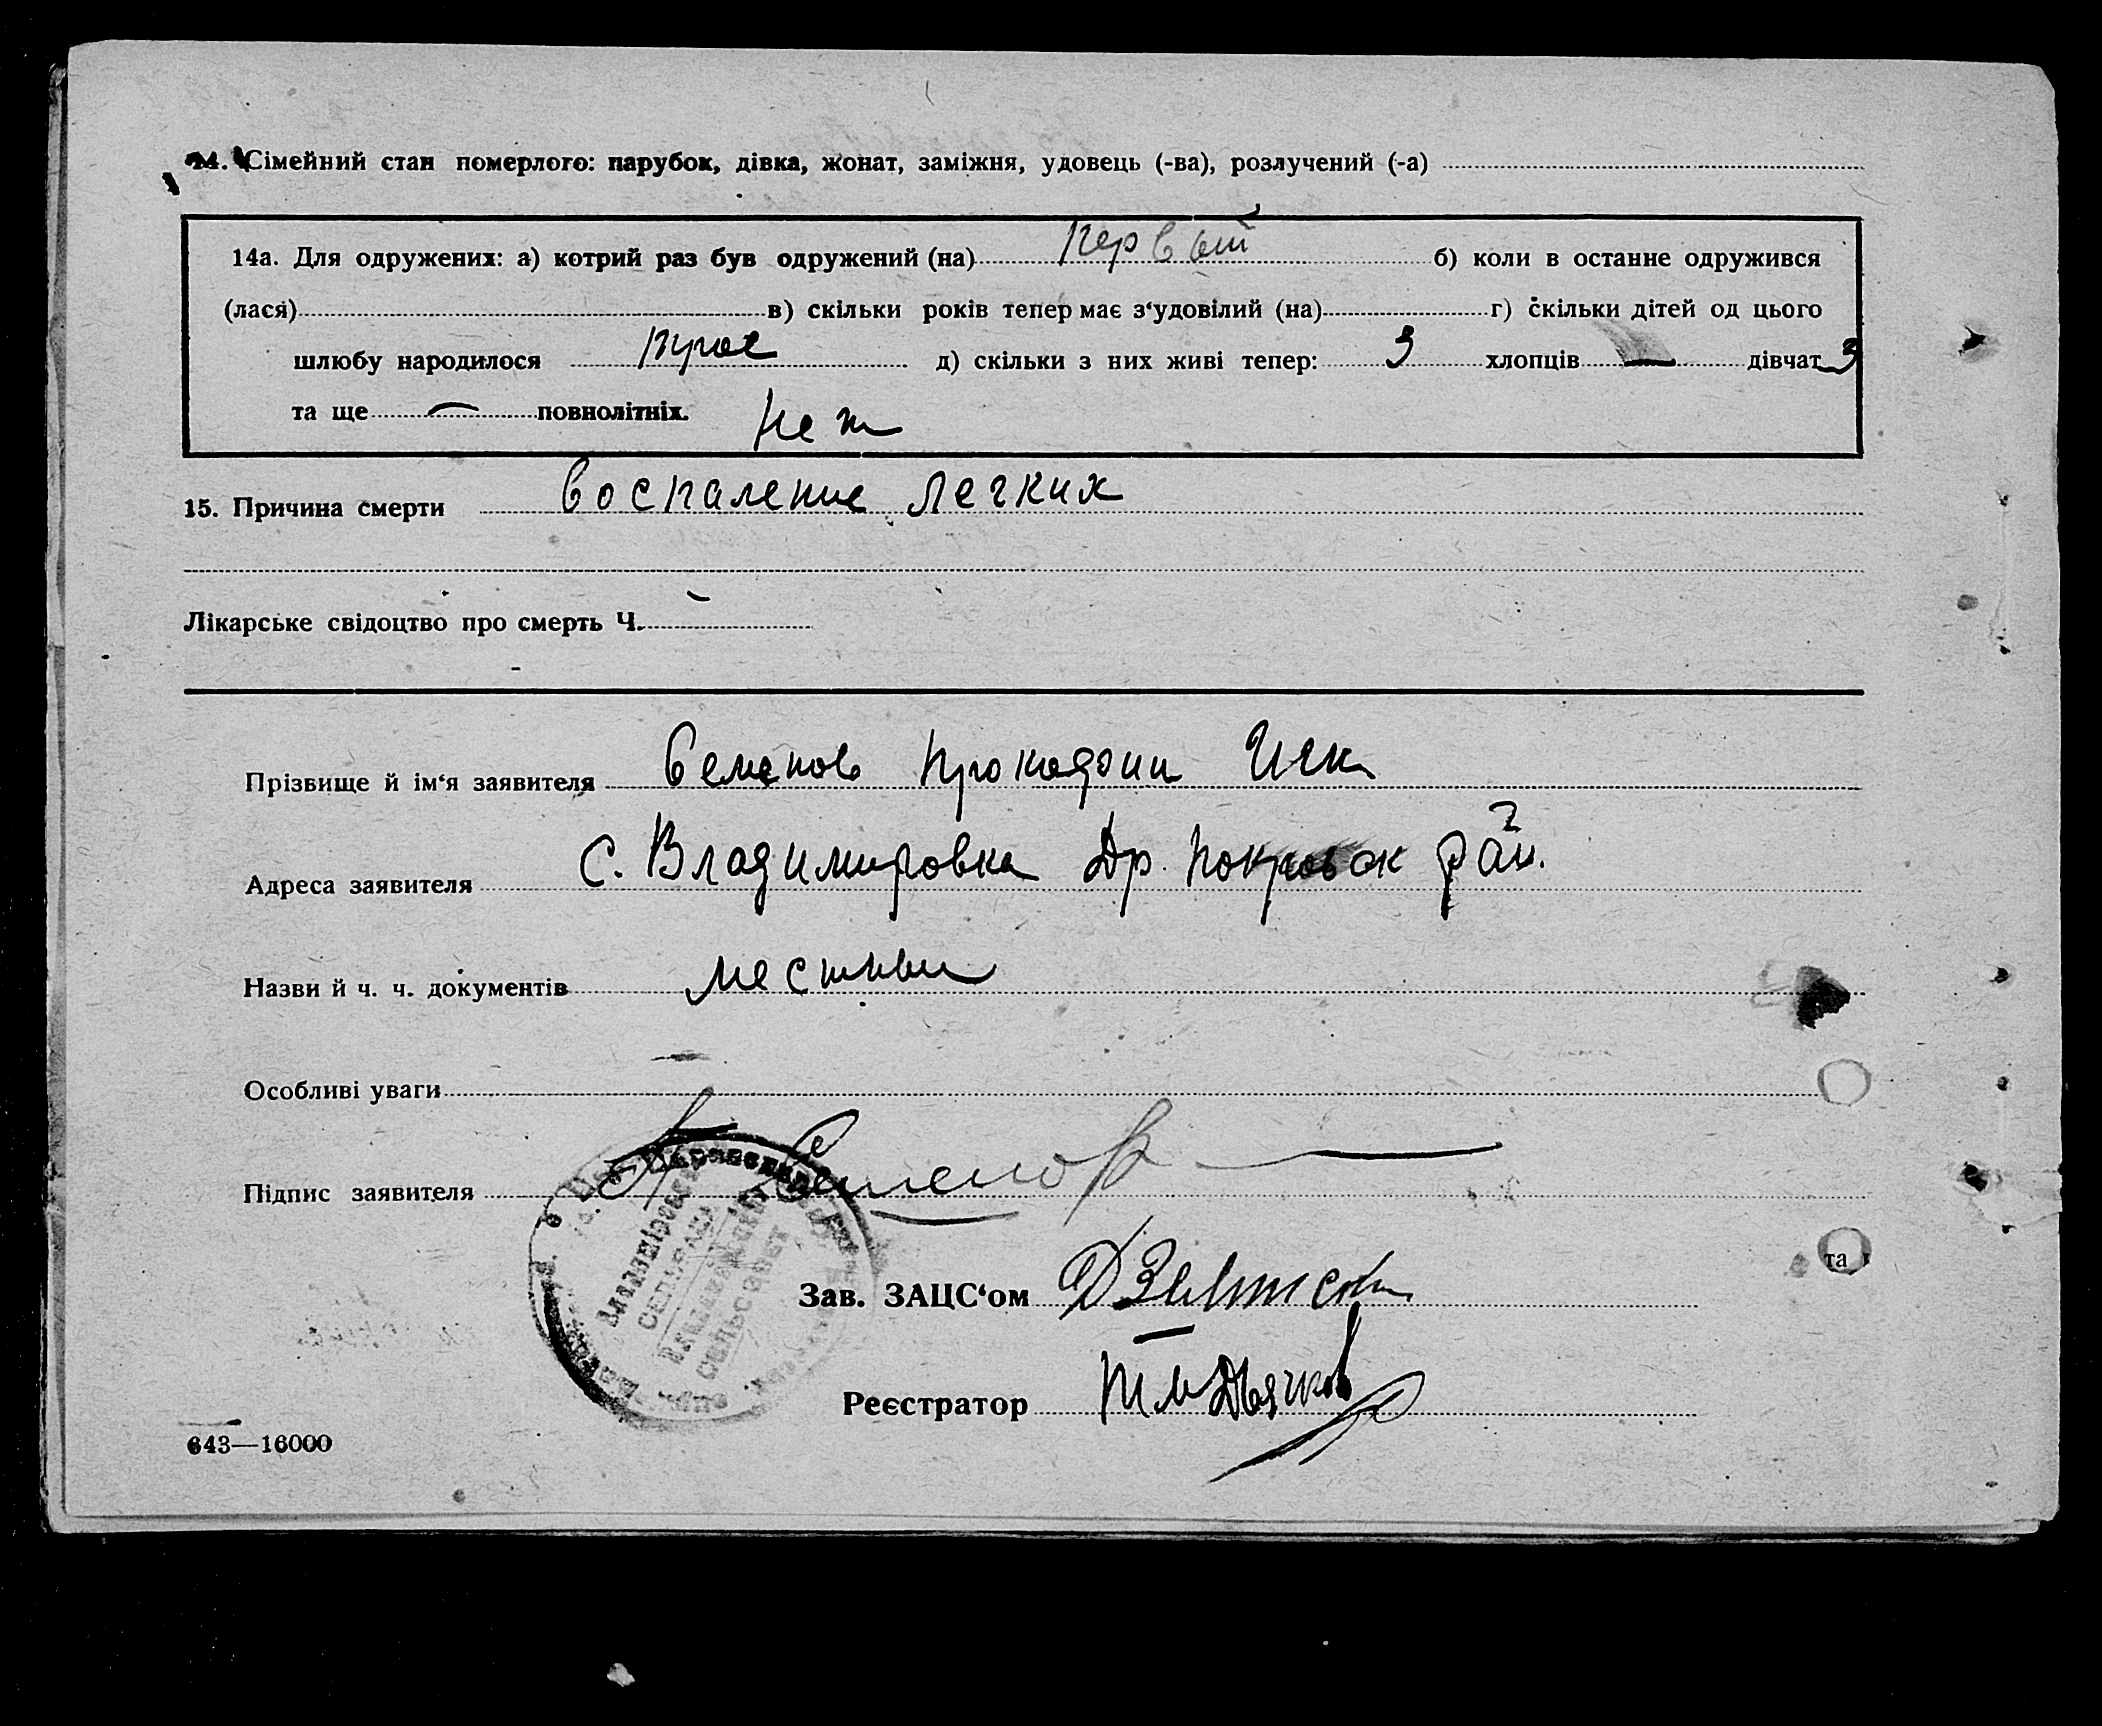 14. Сімейний стан померлого: парубок, дівка, жонат, заміжня, удовець (-ва), розлучений (-а)
14а. Для одружених: а) котрий раз був одружений (на) Первый б) коли в останнє одружився
(лася) в) скільки років тепер має з‘удовілий (на) г) скільки дітей од цього
шлюбу народилося трое д) скільки з них живі тепер: 3 хлопців — дівчат 3
та ще — повнолітніх. Нет
15. Причина смерти Воспаление легких
Лікарське свідоцтво про смерть Ч. —
Прізвище й ім‘я заявителя Семенов
Адреса заявителя С. Владимировка Др. Покровск рай.
Назви й ч. ч. документів
Особливі уваги
Підпис заявителя Семенов
та
Зав. ЗАЦС‘ом
Реєстратор Дьячков
643—16000